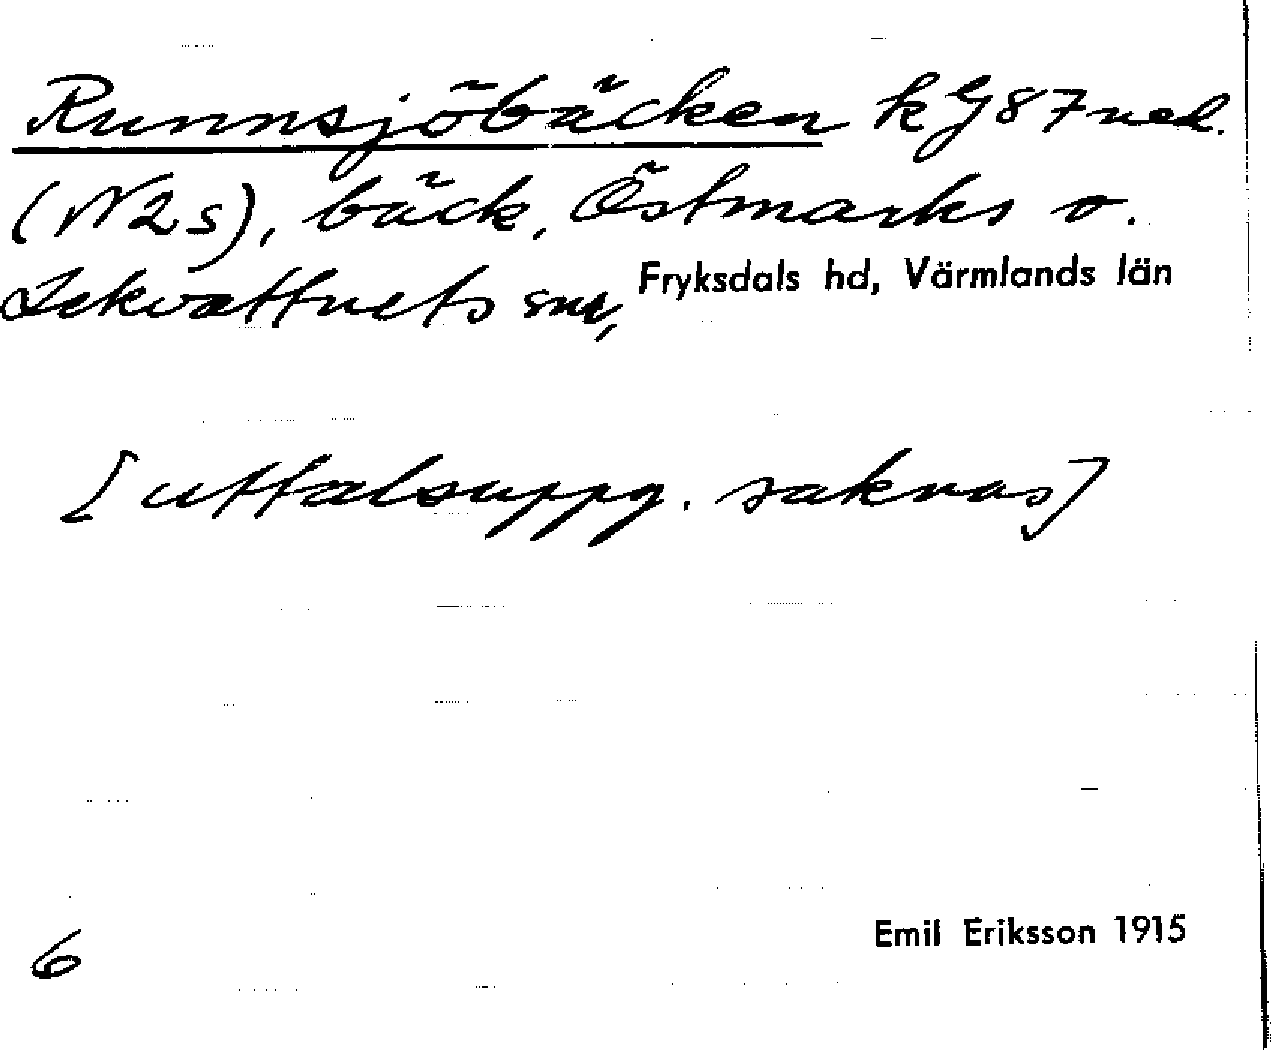 Runnsjöbäcken kG87ned.
(N2s), bäck, Östmarks o.
Lekvattnets snr, Fryksdals hd, Värmlands län
[uttalsuppg. saknas]
6
Emil Eriksson 1915